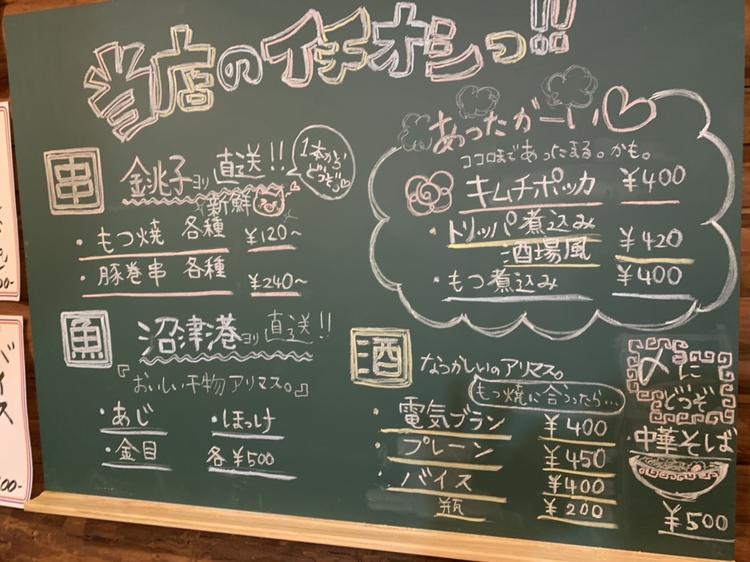 当店のイチオシっ!!
串
銚子ヨリ直送!!
1本から
どうぞ♡
新鮮
・もつ焼 各種 ¥120~
・豚巻串 各種 ¥240~
魚
沼津港ヨリ直送!!
『おいしい干物アリマス。』
・あじ ・ほっけ
・金目 各¥500
あったかーい♡
ココロまであったまる。かも。
キムチポッカ ¥400
・トリッパ煮込み
酒場風 ¥420
・もつ煮込み ¥400
酒
なつかしいのアリマス。
もつ焼に合うったら…
・電気ブラン ¥400
・プレーン ¥450
・バイス ¥400
瓶 ¥200
〆に
どうぞ
・中華そば
¥500
バイス